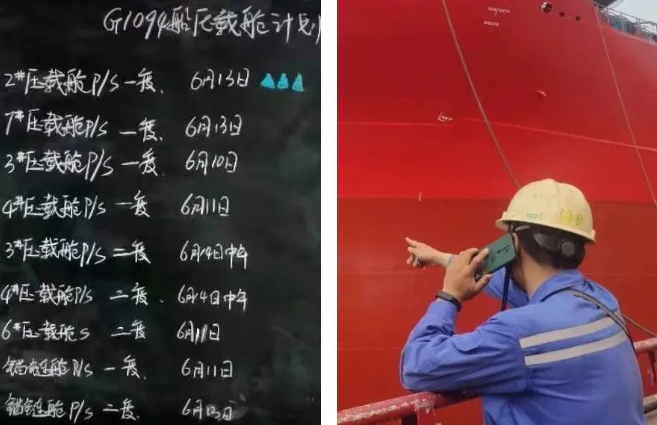 G1094船压载舱计划
2#压载舱P/S一度、 6月13日
7#压载舱P/S 一度、 6月13日
3#压载舱P/S 一度、 6月10日
4#压载舱P/S 一度 6月11日
3#压载舱P/S 二度 6月14日中午
4#压载舱P/S 二度、 6月14日中午
6#压载舱S 二度 6月11日
锚链舱P/S 一度、 6月11日
锚链舱P/S 二度、 6月13日